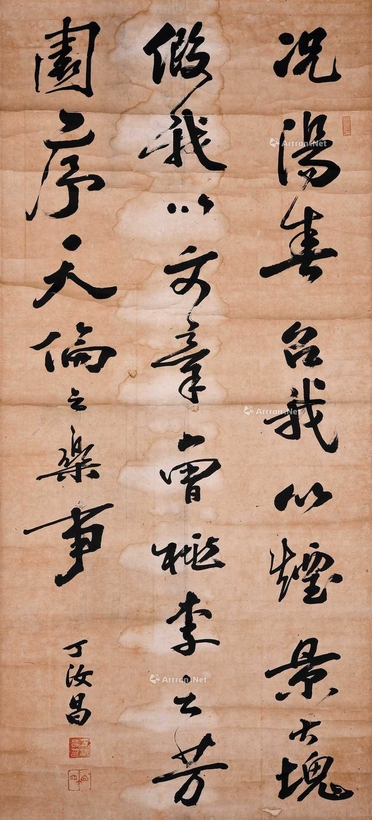 况陽春召我以煙景大塊
假我以文章會桃李之芳
園序天倫之樂事
丁汝昌
Artron.Net
Artron.Net
Artron.Net